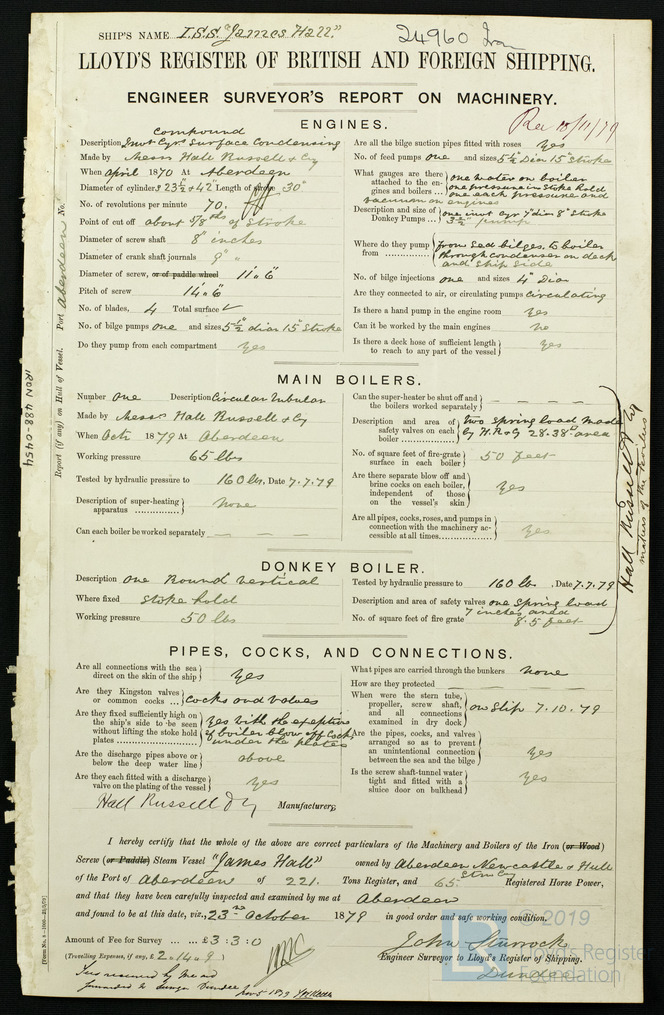 SHIP'S NAME I.S.S. "James Hall."
24960 Iron
LLOYD'S REGISTER OF BRITISH AND FOREIGN SHIPPING.
ENGINEER SURVEYOR'S REPORT ON MACHINERY.
Rec 10/11/79
ENGINES.
compound
Description Invt Cyr Surface Condensing
Made by Messrs Hall Russell & Cy
When April 1870 At Aberdeen
Diameter of cylinders 23½ & 42" Length of stroke 30"
No. of revolutions per minute 70.
Point of cut off about 5/8ths of Stroke
Diameter of screw shaft 8" inches
Diameter of crank shaft journals 9" "
Diameter of screw, or of paddle wheel 11'.. 6"
Pitch of screw 14'.. 6"
No. of blades, 4 Total surface ✓
No. of bilge pumps one and sizes 5½" dia 15" Stroke
Do they pump from each compartment yes
Are all the bilge suction pipes fitted with roses yes
No. of feed pumps one and sizes 5½" Dia 15" Stroke
What gauges are there attached to the engines and boilers one water on boiler
one pressure in stoke hold
one each pressure and
vacuum on engines
Description and size of Donkey Pumps one invt cyr 7" dia 8" Stroke
3½" pump
Where do they pump from from sea bilges, to boiler
through condenser on deck
and ship side
No. of bilge injections one and sizes 4" Dia
Are they connected to air, or circulating pumps circulating
Is there a hand pump in the engine room yes
Can it be worked by the main engines no
Is there a deck hose of sufficient length to reach to any part of the vessel yes
MAIN BOILERS.
Number one Description Circular tubular
Made by Messrs Hall Russell & Cy
When Octr 1879 At Aberdeen
Working pressure 65 lbs
Tested by hydraulic pressure to 160 lbs. Date 7.7.79
Description of super-heating apparatus none
Can each boiler be worked separately — — —
Can the super-heater be shut off and the boilers worked separately — — — —
Description and area of safety valves on each boiler two spring load made
by H.R & Cy 28.38" area
No. of square feet of fire-grate surface in each boiler 50 feet
Are there separate blow off and brine cocks on each boiler, independent of those on the vessel's skin yes
Are all pipes, cocks, roses, and pumps in connection with the machinery accessible at all times yes
DONKEY BOILER.
Description one Round vertical
Where fixed Stoke hold
Working pressure 50 lbs
Tested by hydraulic pressure to 160 lbs, Date 7.7.79
Description and area of safety valves one spring load
7 inches area
No. of square feet of fire grate 8.5 feet
Hall Russell & Cy
makers of the boilers
PIPES, COCKS, AND CONNECTIONS.
Are all connections with the sea direct on the skin of the ship yes
Are they Kingston valves or common cocks cocks and valves
Are they fixed sufficiently high on the ship's side to be seen without lifting the stoke hold plates yes with the exception
of boiler blow off Cock
under the plates
Are the discharge pipes above or below the deep water line above
Are they each fitted with a discharge valve on the plating of the vessel yes
What pipes are carried through the bunkers none
How are they protected
When were the stern tube, propeller, screw shaft, and all connections examined in dry dock on Slip 7.10.79
Are the pipes, cocks, and valves arranged so as to prevent an unintentional connection between the sea and the bilge yes
Is the screw shaft-tunnel water tight and fitted with a sluice door on bulkhead yes
Hall Russell & Cy Manufacturers,
I hereby certify that the whole of the above are correct particulars of the Machinery and Boilers of the Iron (or Wood)
Screw (or Paddle) Steam Vessel "James Hall" owned by Aberdeen Newcastle & Hull
Stm Coy
of the Port of Aberdeen of 221. Tons Register, and 65 Registered Horse Power,
and that they have been carefully inspected and examined by me at Aberdeen
and found to be at this date, viz., 23rd October 1879 in good order and safe working condition.
Amount of Fee for Survey ... ... £3:3:0
(Travelling Expenses, if any, £2.14.9)
John Sturrock
Engineer Surveyor to Lloyd's Register of Shipping.
Dundee
Fees received by me and
forwarded to Dundee Nov 5 1879
Report (if any) on Hull of Vessel. Port Aberdeen No.
IRON 488-0454
© 2019
Lloyd's Register
Foundation